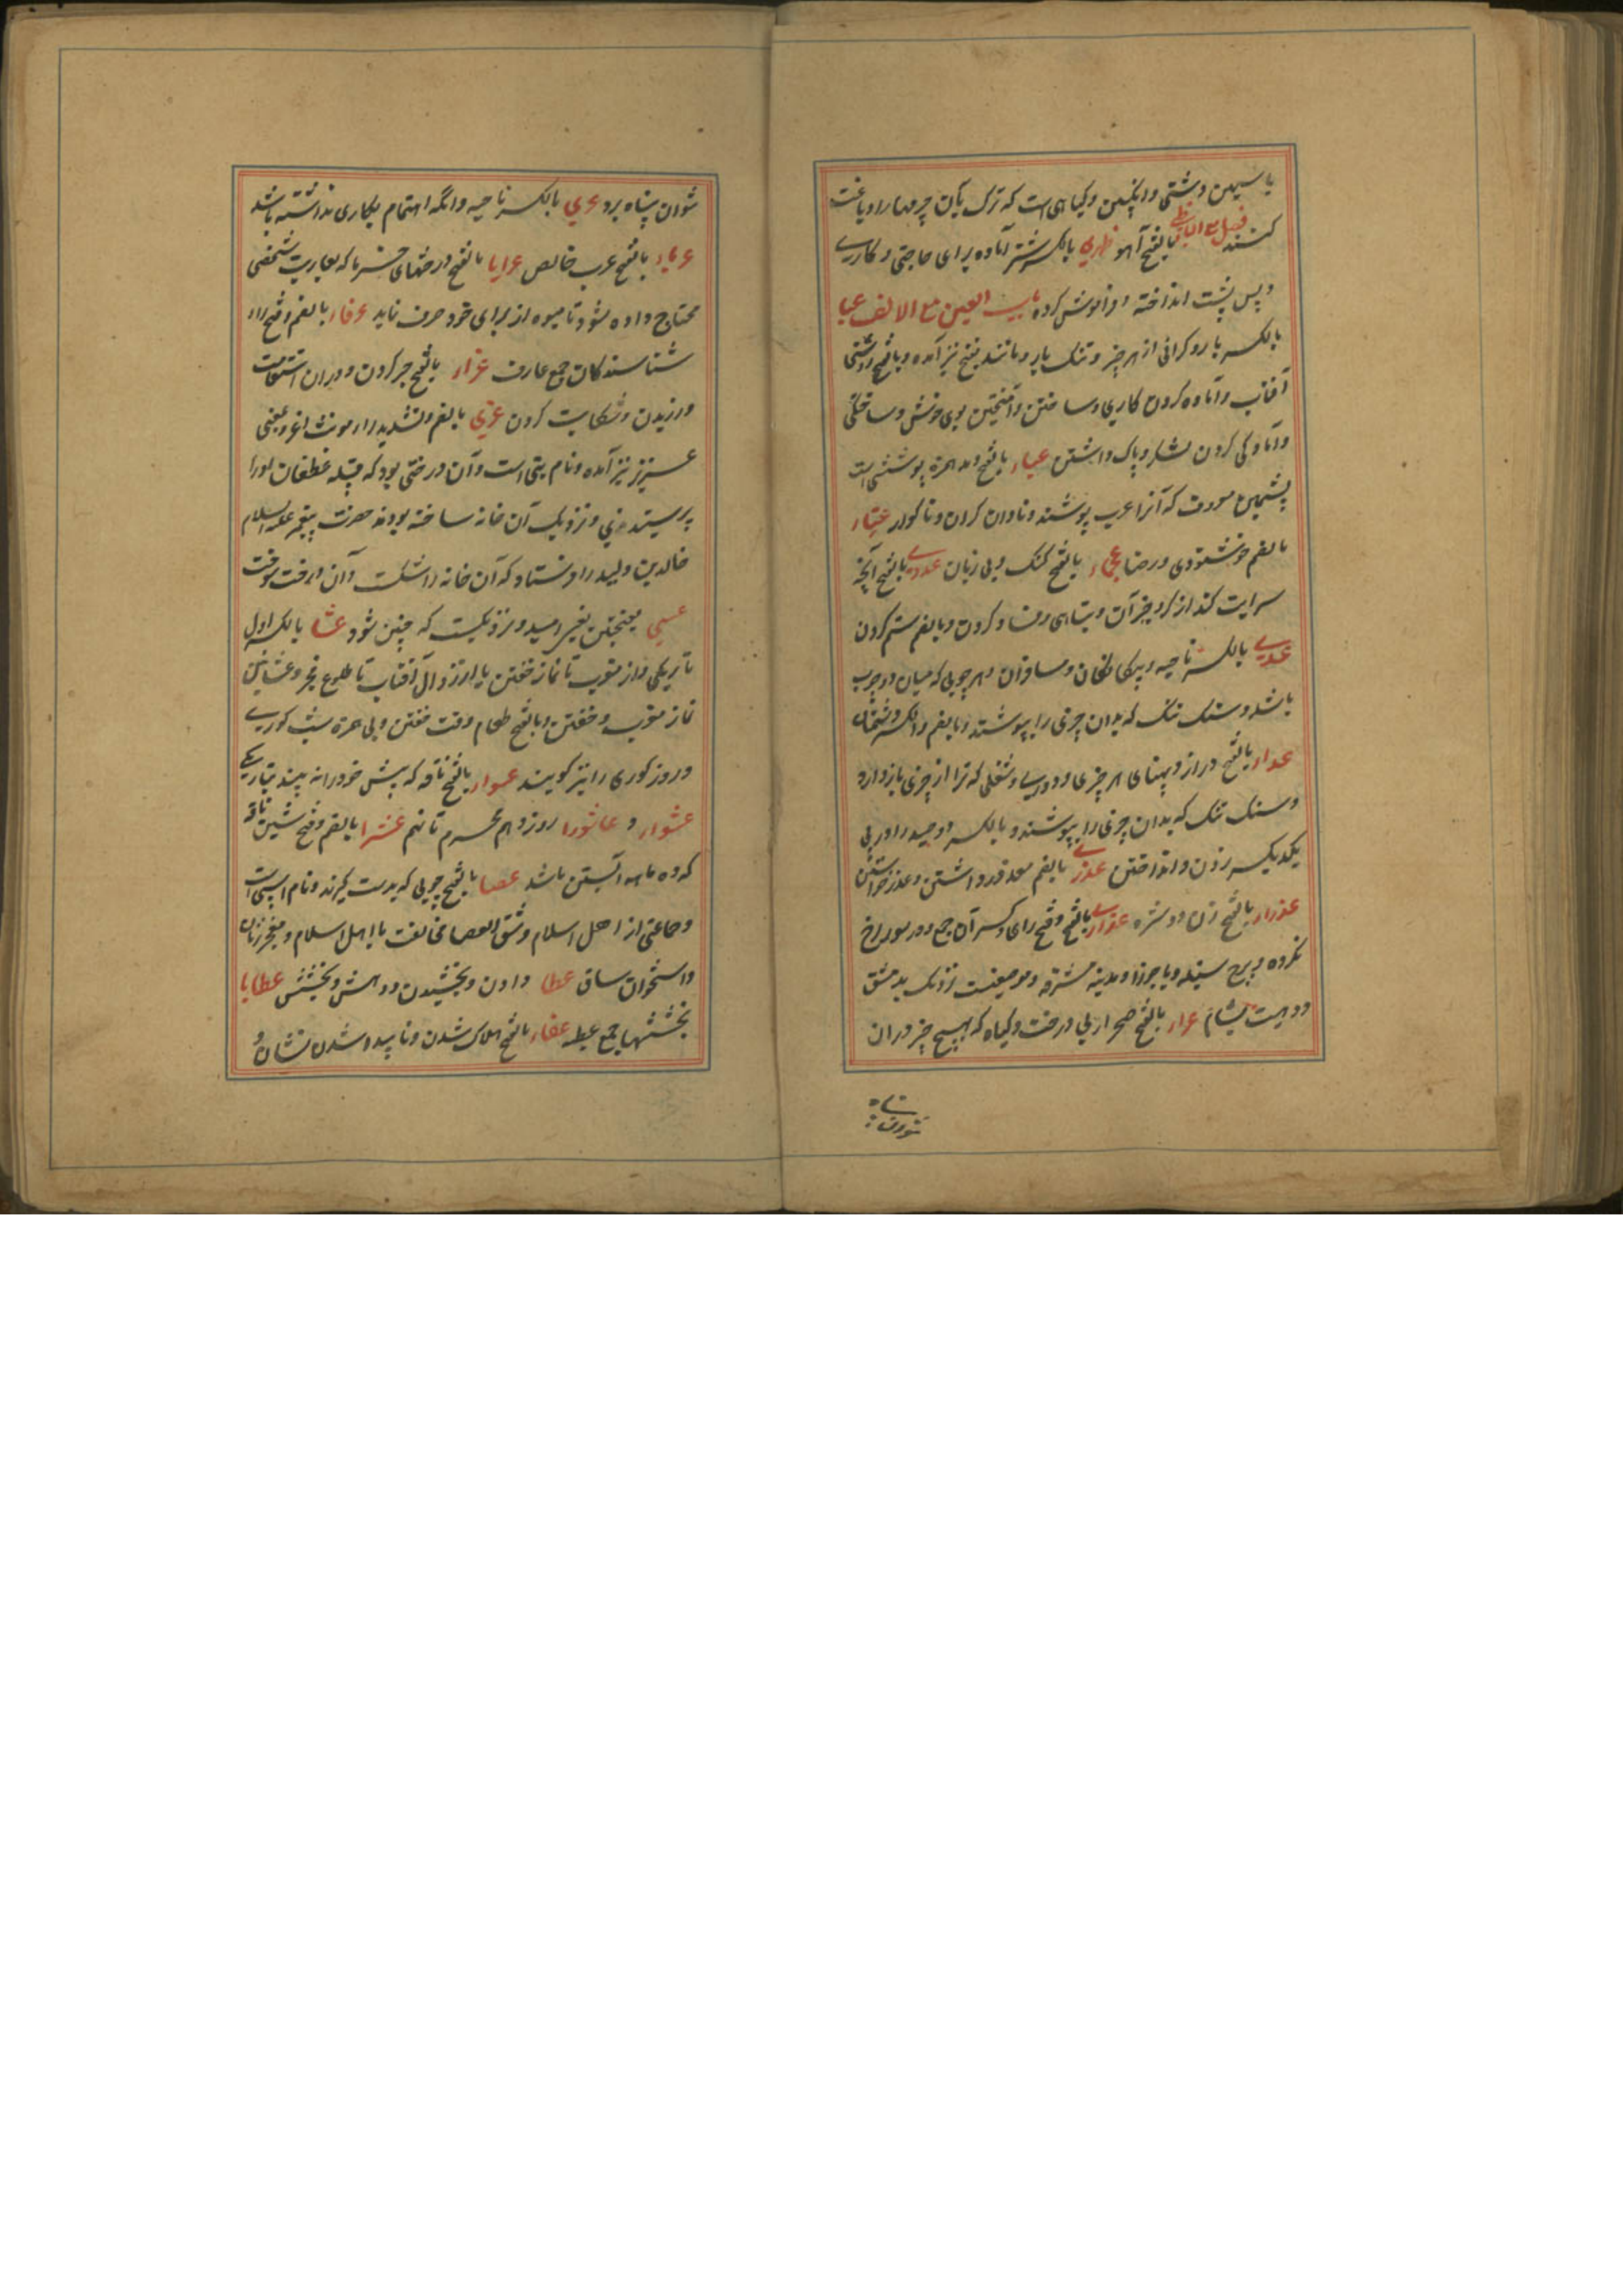 کنند فصل مع الیا ظبی بالفتح آهو ظهری بالکسر شتر آماده برای حاجتی و کاری
و پس پشت انداخته و فراموش کرده باب العین مع الالف عبا
بالکسر بار و گرانی از هر چیز و تنگ بار و مانند بفتح نیز آمده و بالفتح روشنی
آفتاب و آماده کردن کاری و ساختن و آمیختن بوی خوش و ساختگی
و آمادگی کردن لشکر و پاک داشتن عباء بالفتح و مد همزه پوششی است
پشمین معروف که آنرا عرب پوشند و نادان گران و ناگوار
بالضم خوشنودی و رضا عجماء بالفتح گنگ و بی زبان عدوی بالفتح آنچه
سرایت کند از گر و جز آن و تباهی و فساد کردن و بالضم ستم کردن
عدی بالکسر ناحیه و بیگانگان و مسافران و هر چوبی که میان دو چوب
باشد و سنگ تنگ که بدان چیزی را بپوشند و بالضم و الکسر دشمنان
عداء بالفتح دراز و پهنای هر چیزی و دوری و شغلی که ترا از چیزی باز دارد
و سنگ تنگ که بدان چیزی را بپوشند و بالکسر دو صید را در پی
یکدیگر زدن و انداختن عذری بالضم معذور داشتن و عذر خواستن
عذراء بالفتح زن دوشیزه عذاری بالفتح و فتح رای و کسر آن جمع و در سوراخ
نکرده و برج سنبله و یا جوزا و مدینه مشرفه و موضعیست نزدیک بدمشق
و دهیست بشام عراء بالفتح صحرای بی درخت و گیاه که هیچ چیز در آن
نتوان پناه
نتوان پناه برد عری بالکسر ناحیه و آنکه اهتمام بکاری نداشته باشد
عرباء بالفتح عرب خالص عرایا بالفتح درختهای خرما که بعاریت شخصی
محتاج داده شود تا میوه از برای خود صرف نماید عرفاء بالضم و فتح راء
شناسندگان جمع عارف عزاء بالفتح صبر کردن و در آن استقامت
ورزیدن و شکایت کردن عزی بالضم و تشدید زاء مونث اعز و بمعنی
عزیز نیز آمده و نام بتی است و آن درختی بود که قبیله غطفان او را
پرستیدندی و نزدیک آن خانه ساخته بودند حضرت پیغمبر علیه السلام
خالد بن ولید را فرستاد که آن خانه را شکست و آن درخت سوخت
عسی بفتحتین بمعنی امید و نزدیکست که چنین شود عشا بالکسر اول
تاریکی و از مغرب تا نماز خفتن یا از زوال آفتاب تا طلوع فجر و عشائین
نماز مغرب و خفتن و بالفتح طعام وقت خفتن و بی همزه شب کوری
و روز کوری را نیز گویند عشواء بالفتح ناقه که پیش خود را نه بیند و تاریکی
عشواء و عاشورا روز دهم محرم تا نهم عشرا بالضم و فتح شین ناقه
که ده ماهه آبستن باشد عصا بالفتح چوبی که بدست گیرند و نام اسپی است
و جماعتی از اهل اسلام و شق العصا مخالفت با اهل اسلام و معجر زنان
و استخوان ساق عطا دادن و بخشیدن و دهش و بخشش عطایا
بخششها جمع عطیه عفاء بالفتح هلاک شدن و ناپیدا شدن نشان و